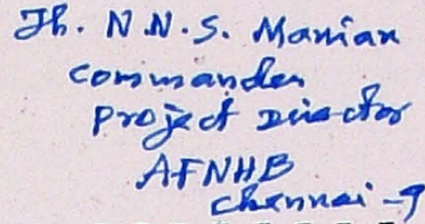 Th. N.N.S. Manian
Commander
Project Director
AFNHB
Chennai-9